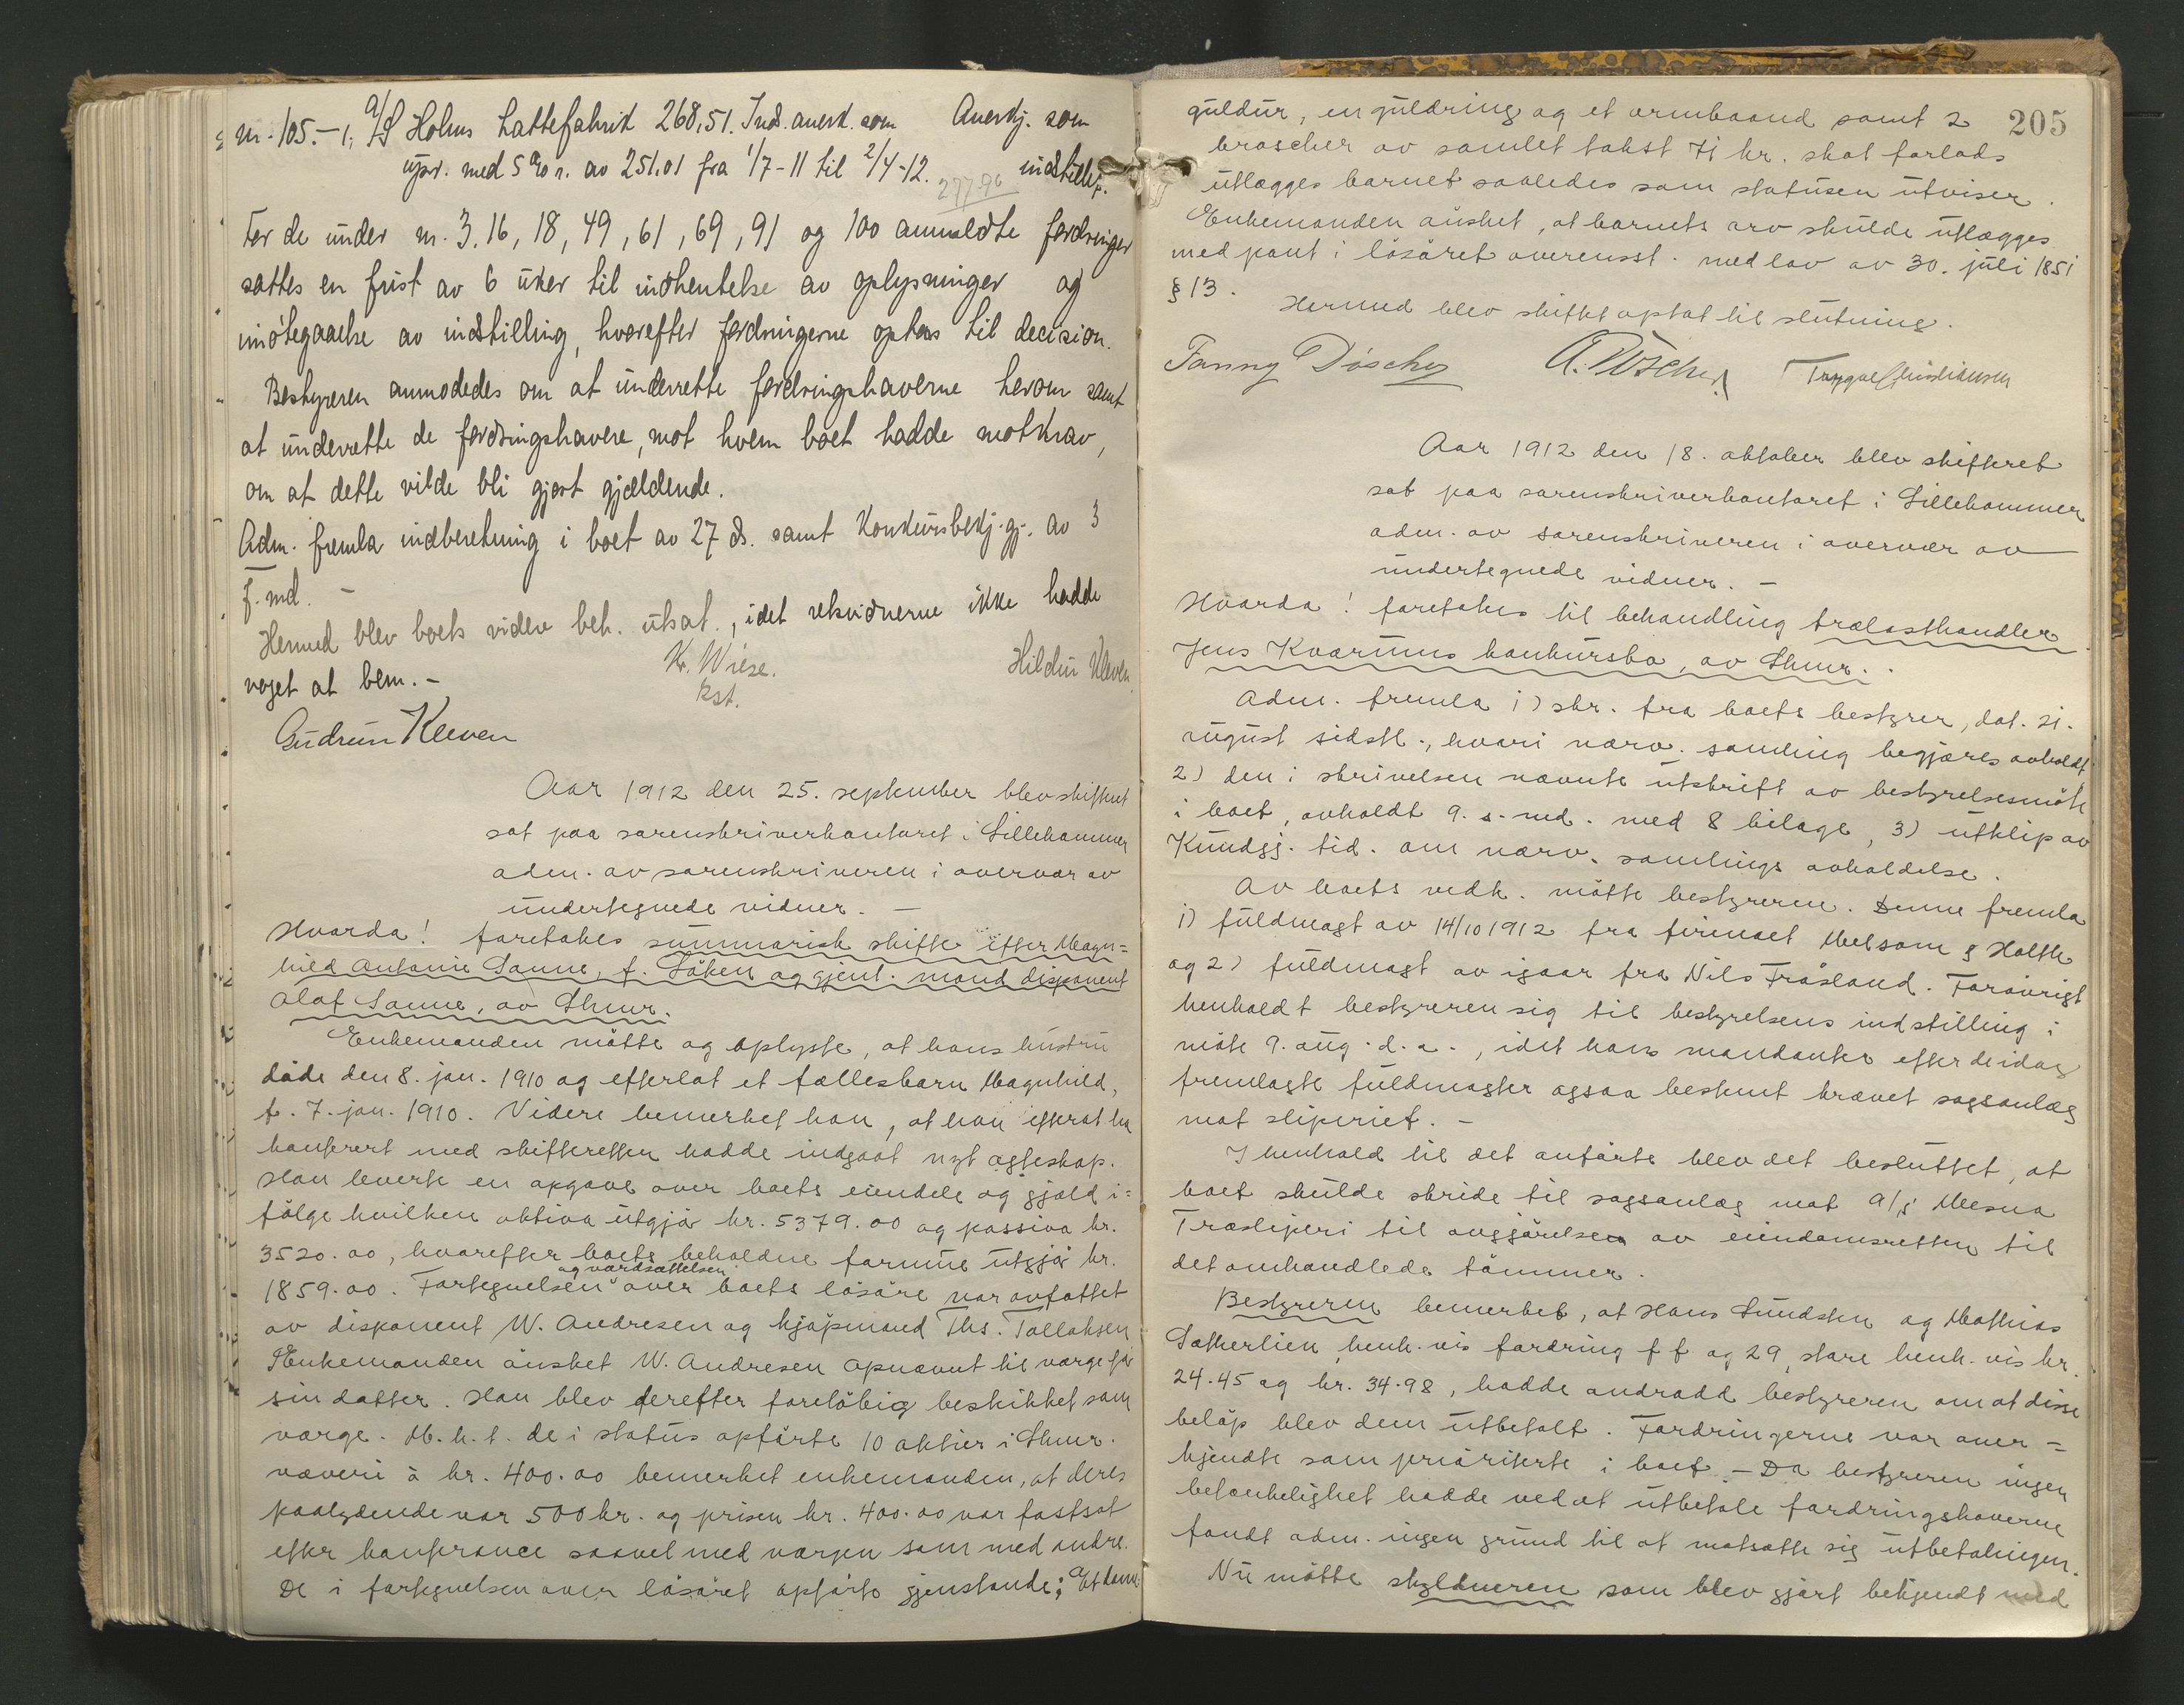 nr. 105.- 1, A/S Holms Hattefabrik 268,51. Inds. anerk. som Anerkj. som
upr. med 5% r. av 251,01 fra 1/7-11 til 2/4-12. indstillet.
277.96
For de under nr. 3, 16, 18, 49, 61, 69, 91 og 100 anmeldte fordringer
sattes en frist av 6 uker til indhentelse av oplysninger og
imøtegaaelse av indstilling, hvorefter fordringerne optas til decision.
Bestyreren anmodedes om at underrette fordringshaverne herom samt
at underrette de fordringshavere, mot hvem boet hadde motkrav,
om at dette vilde bli gjort gjældende.
Adm. fremla indberetning i boet av 27 ds. samt Konkursbekj.gj. av 3
f. md. -
Hermed blev boets videre beh. utsat, idet retsvidnerne ikke hadde
noget at bem. -
Kr. Wiese.
kst.
Hildur Kleven
Gudrun Kleven
Aar 1912 den 25. september blev skifteret
sat paa sorenskriverkontoret i Lillehammer
adm. av sorenskriveren i overvær av
undertegnede vidner. -
Hvorda! foretokes summarisk skifte efter Magn=
hild Antonie Sanne, f. Löken og gjenl. mand disponent
Olaf Sanne, av Lhmr.
Enkemanden mötte og oplyste, at hans hustru
döde den 8. jan. 1910 og efterlot et fællesbarn Magnhild,
f. 7. jan. 1910. Videre bemerket han, at han efterat ha
konferert med skifteretten hadde indgaat nyt ægteskap.
Han leverte en opgave over boets eiendele og gjæld i=
fölge hvilken aktiva utgjör kr. 5379.00 og passiva kr.
3520.00, hvorefter boets beholdne formue utgjör kr.
1859.00. Fortegnelsen og værdsættelsen over boets lösöre var avfattet
av disponent W. Andresen og kjöpmand Ths. Tollefsen
Enkemanden önsket W. Andresen opnævnt til værge for
sin datter. Han blev derefter forelöbig beskikket som
værge. M.h.t. de i status opförte 10 aktier i Lhmr.
væveri à kr. 400.00 bemerket enkemanden, at deres
paalydende var 500 kr. og prisen kr. 400.00 var fastsat
efter konferance saavel med værgen som med andre.
De i fortegnelsen over lösöret opförte gjenstande: Et dame
205
guldur, en guldring og et armbaand samt 2
broscher av samlet takst 71 kr. skal forlods
utlægges barnet saaledes som statusen utviser.
Enkemanden önsket, at barnets arv skulde utlægges
med pant i lösöret overensst. med lov av 30. juli 1851
§ 13.
Hermed blev skiftet optat til slutning.
Fanny Döscher A. Döscher Trygve Christiansen
Aar 1912 den 18. oktober blev skifteret
sat paa sorenskriverkontoret i Lillehammer
adm. av sorenskriveren i overvær av
undertegnede vidner. -
Hvorda! foretokes til behandling trælasthandler
Jens Kværums konkursbo, av Lhmr.
Adm. fremla 1) skr. fra boets bestyrer, dat. 21.
august sidstl., hvori nærv. samling begjæres avholdt,
2) den i skrivelsen nævnte utskrift av bestyrelsesmöte
i boet, avholdt 9. s. md. med 8 bilage, 3) utklip av
Kundgj. tid. om nærv. samlings avholdelse.
Av boets vedk. mötte bestyreren. Denne fremla
1) fuldmagt av 14/10 1912 fra firmaet Melsom & Holthe
og 2) fuldmagt av igaar fra Nils Fråsland. Forövrigt
henholdt bestyreren sig til bestyrelsens indstilling i
möte 9. aug. d.a., idet hans mandanter efter de idag
fremlagte fuldmagter ogsaa bestemt krævet sagsanlæg
mot sliperiet. -
I henhold til det anförte blev det besluttet, at
boet skulde skride til sagsanlæg mot A/S Mesna
Træsliperi til avgjörelsen av eiendomsretten til
det omhandlede tömmer.
Bestyreren bemerket, at Hans Sundsten og Mathias
Sætherlien, henh. vis fordring ff og 29, store henh. vis kr.
24.45 og kr. 34.98, hadde andradd bestyreren om at disse
belöp blev dem utbetalt. Fordringerne var aner=
kjendte som prioriterte i boet. - Da bestyreren ingen
betænkelighet hadde ved at utbetale fordringshaverne
fandt adm. ingen grund til at motsætte sig utbetalingen.
Nu mötte skyldneren som blev gjort bekjendt med